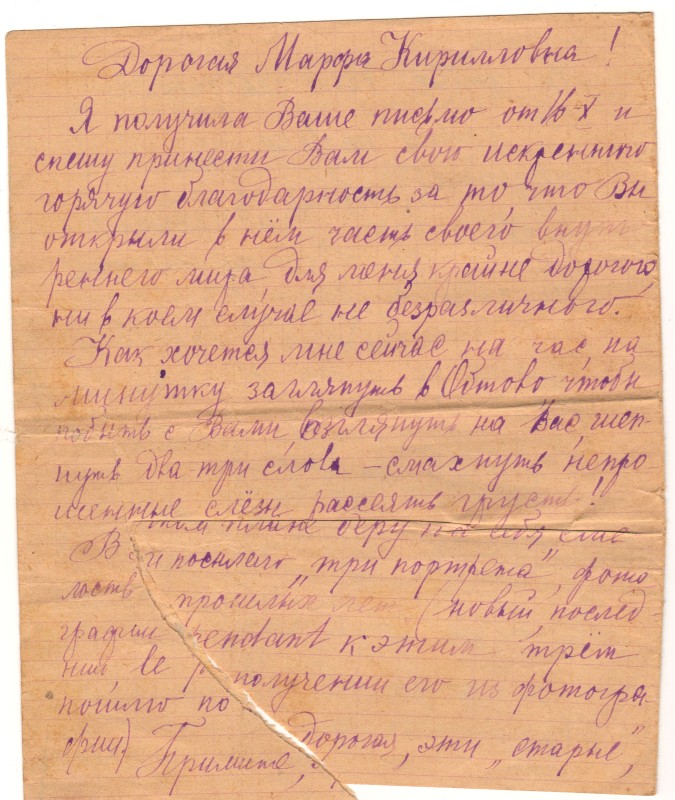 Дорогая Марфа Кирилловна!
Я получила Ваше письмо от 16-X и
спешу принести Вам свою искреннюю
горячую благодарность за то что Вы
открыли в нём часть своего внут
реннего мира, для меня крайне дорогого,
ни в коем случае не безразличного.
Как хочется мне сейчас на час, на
минутку заглянуть в Обтово чтобы
побыть с Вами, взглянуть на Вас, шеп-
нуть два три слова – смахнуть непро
шенные слёзы рассеять грусть!
В плане беру на себя сме
лость и посылаю „три портрета", фото
графии прошлых лет (новый, послед-
ний, le pendant к этим трём
пошлю по получении его из фотогра-
фии) Примите, дорогая, эти „старые",